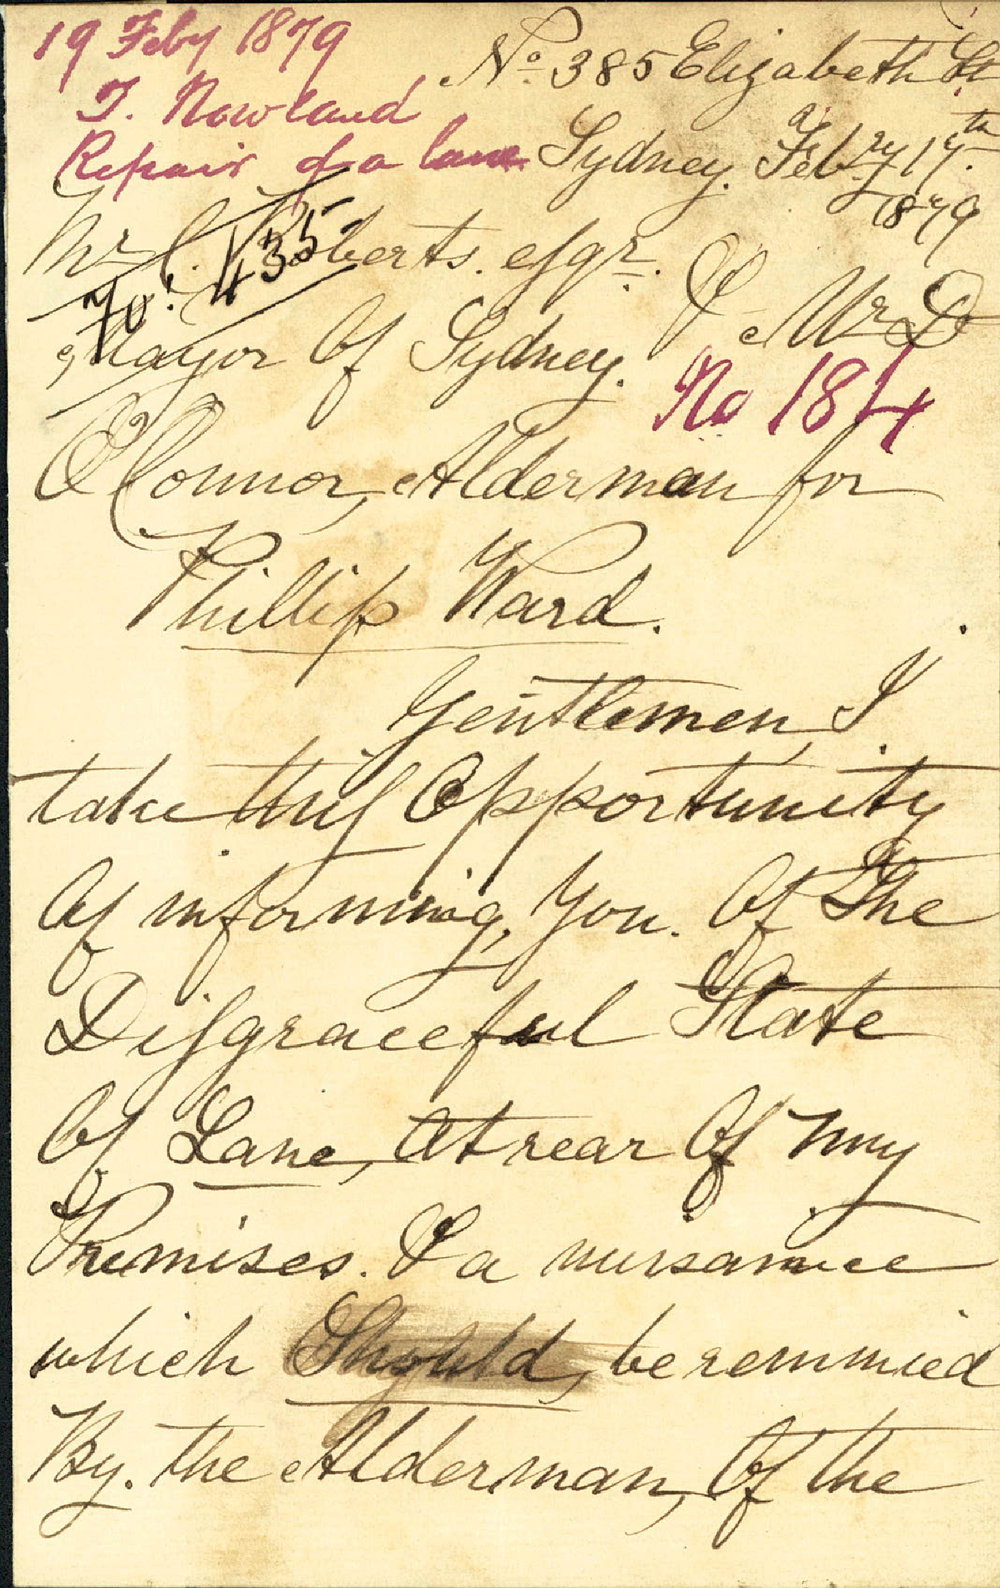 19 Feby 1879
T. Nowland
Repair of a lane
No. 385 Elizabeth St
Sydney. Feby 19th
1879
Mr C. Roberts. esqr.
No. 435
Mayor Of Sydney. & Mr D
No 184
O'Connor, Alderman for
Phillip Ward.
Gentlemen, I
take this Opportunity
Of informing, You. Of The
Disgraceful State
Of Lane, At rear Of my
Premises. & a nuisance
which Should, be
By. the Alderman, Of the